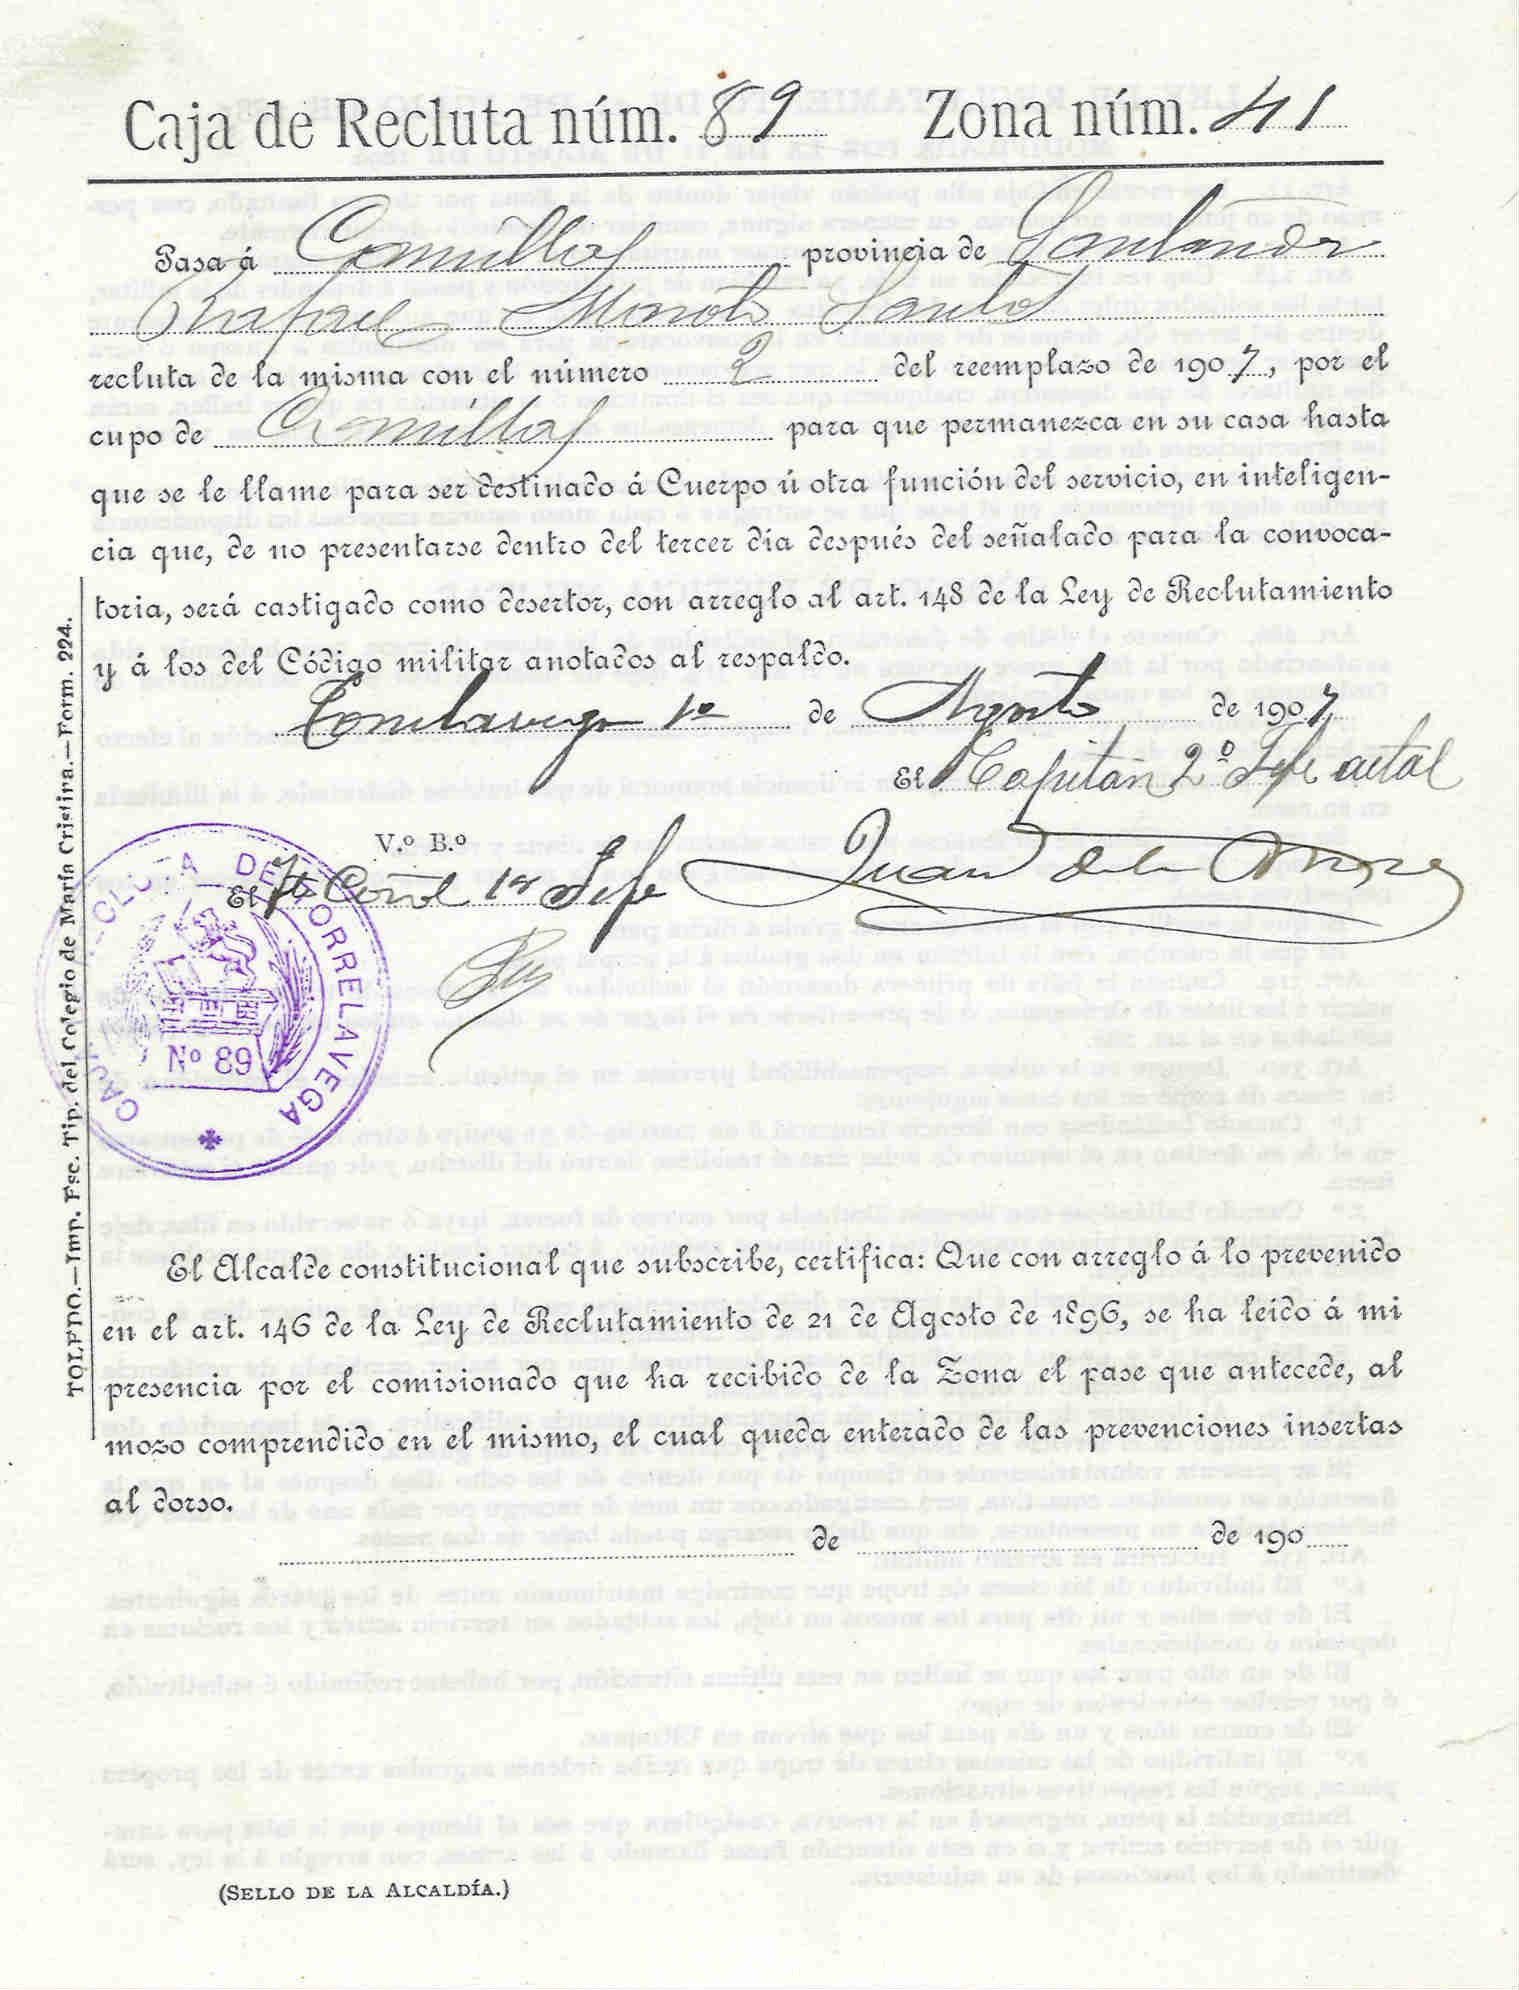 Caja de Recluta núm. 89 Zona núm. 41
Pasa á Comillas provincia de Santander
Rafael Moroto Santos
recluta de la misma con el número 2 del reemplazo de 1907, por el
cupo de Comillas para que permanezca en su casa hasta
que se le llame para ser destinado á Cuerpo ú otra función del servicio, en inteligen-
cia que, de no presentarse dentro del tercer día después del señalado para la convoca-
toria, será castigado como desertor, con arreglo al art. 148 de la Ley de Reclutamiento
y á los del Código militar anotados al respaldo.
Torrelavega 1º de Agosto de 1907
El Capitán 2º Jefe actal
V.º B.º
El Te Corl 1er Jefe
Juan de la
CAJA RECLUTA DE TORRELAVEGA
Nº 89
TOLEDO.—Imp. Esc. Tip. del Colegio de María Cristina.—Form. 224.
El Alcalde constitucional que subscribe, certifica: Que con arreglo á lo prevenido
en el art. 146 de la Ley de Reclutamiento de 21 de Agosto de 1896, se ha leido á mi
presencia por el comisionado que ha recibido de la Zona el pase que antecede, al
mozo comprendido en el mismo, el cual queda enterado de las prevenciones insertas
al dorso.
de de 190
(SELLO DE LA ALCALDÍA.)